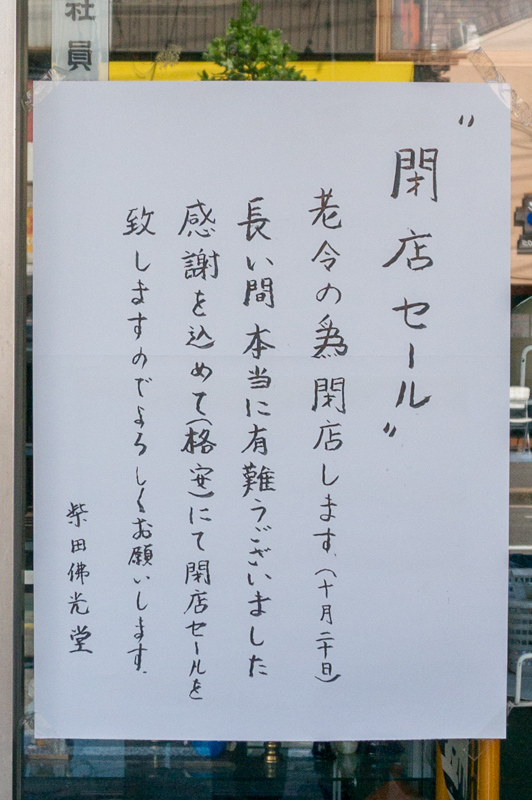 〝閉店セール〟
老令の為閉店します.(十月二十日)
長い間本当に有難うございました
感謝を込めて(格安)にて閉店セールを
致しますのでよろしくお願いします.
柴田佛光堂
社員